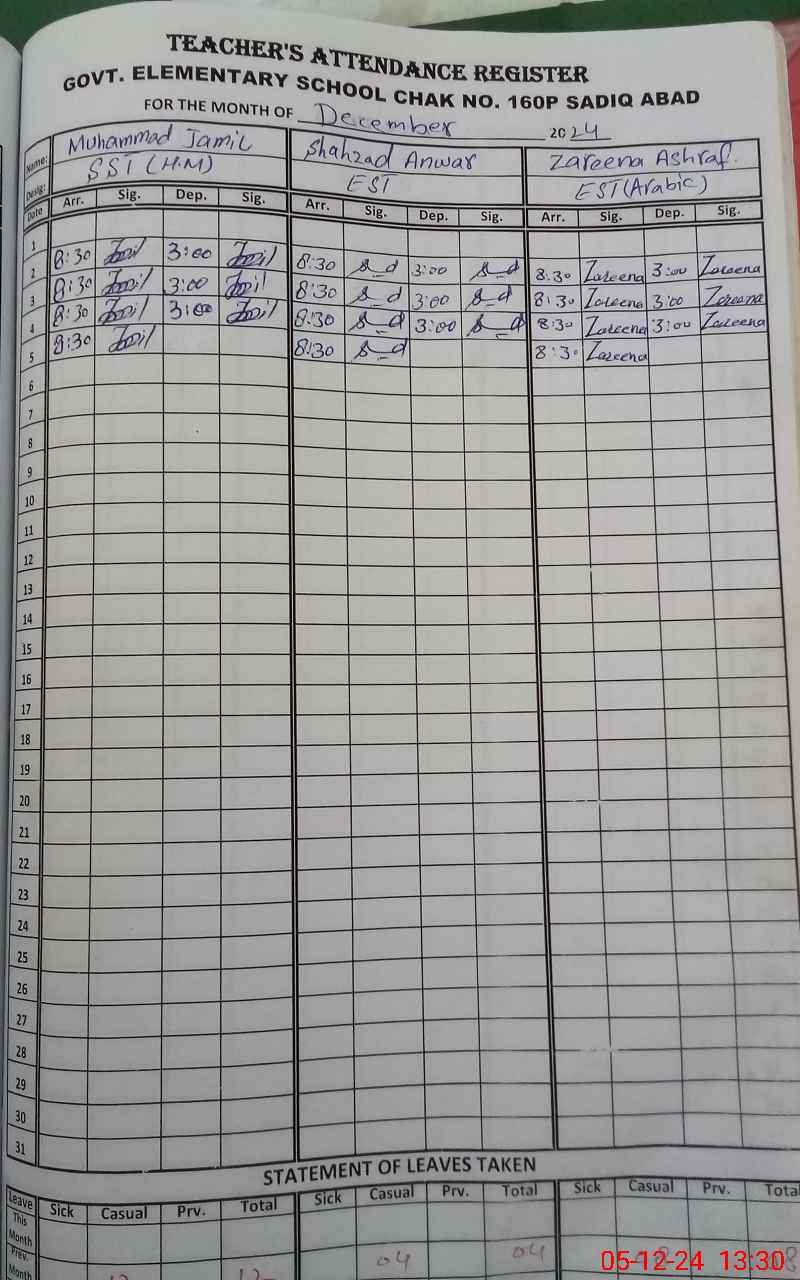 TEACHER'S ATTENDANCE REGISTER
GOVT. ELEMENTARY SCHOOL CHAK NO. 160P SADIQ ABAD
FOR THE MONTH OF December 2024
Name: Muhammad Jamil Shahzad Anwar Zareena Ashraf.
Desig: SST (H.M) EST EST (Arabic)
Date Arr. Sig. Dep. Sig. Arr. Sig. Dep. Sig. Arr. Sig. Dep. Sig.
1
2 8:30 3:00 8:30 3:00 8:30 Zareena 3:00 Zareena
3 8:30 3:00 8:30 3:00 8:30 Zareena 3:00 Zareena
4 8:30 3:00 8:30 3:00 8:30 Zareena 3:00 Zareena
5 8:30 8:30 8:30 Zareena
6
7
8
9
10
11
12
13
14
15
16
17
18
19
20
21
22
23
24
25
26
27
28
29
30
31
STATEMENT OF LEAVES TAKEN
Leave Sick Casual Prv. Total Sick Casual Prv. Total Sick Casual Prv. Total
This Month
Prev. Month 04 04
05-12-24 13:30